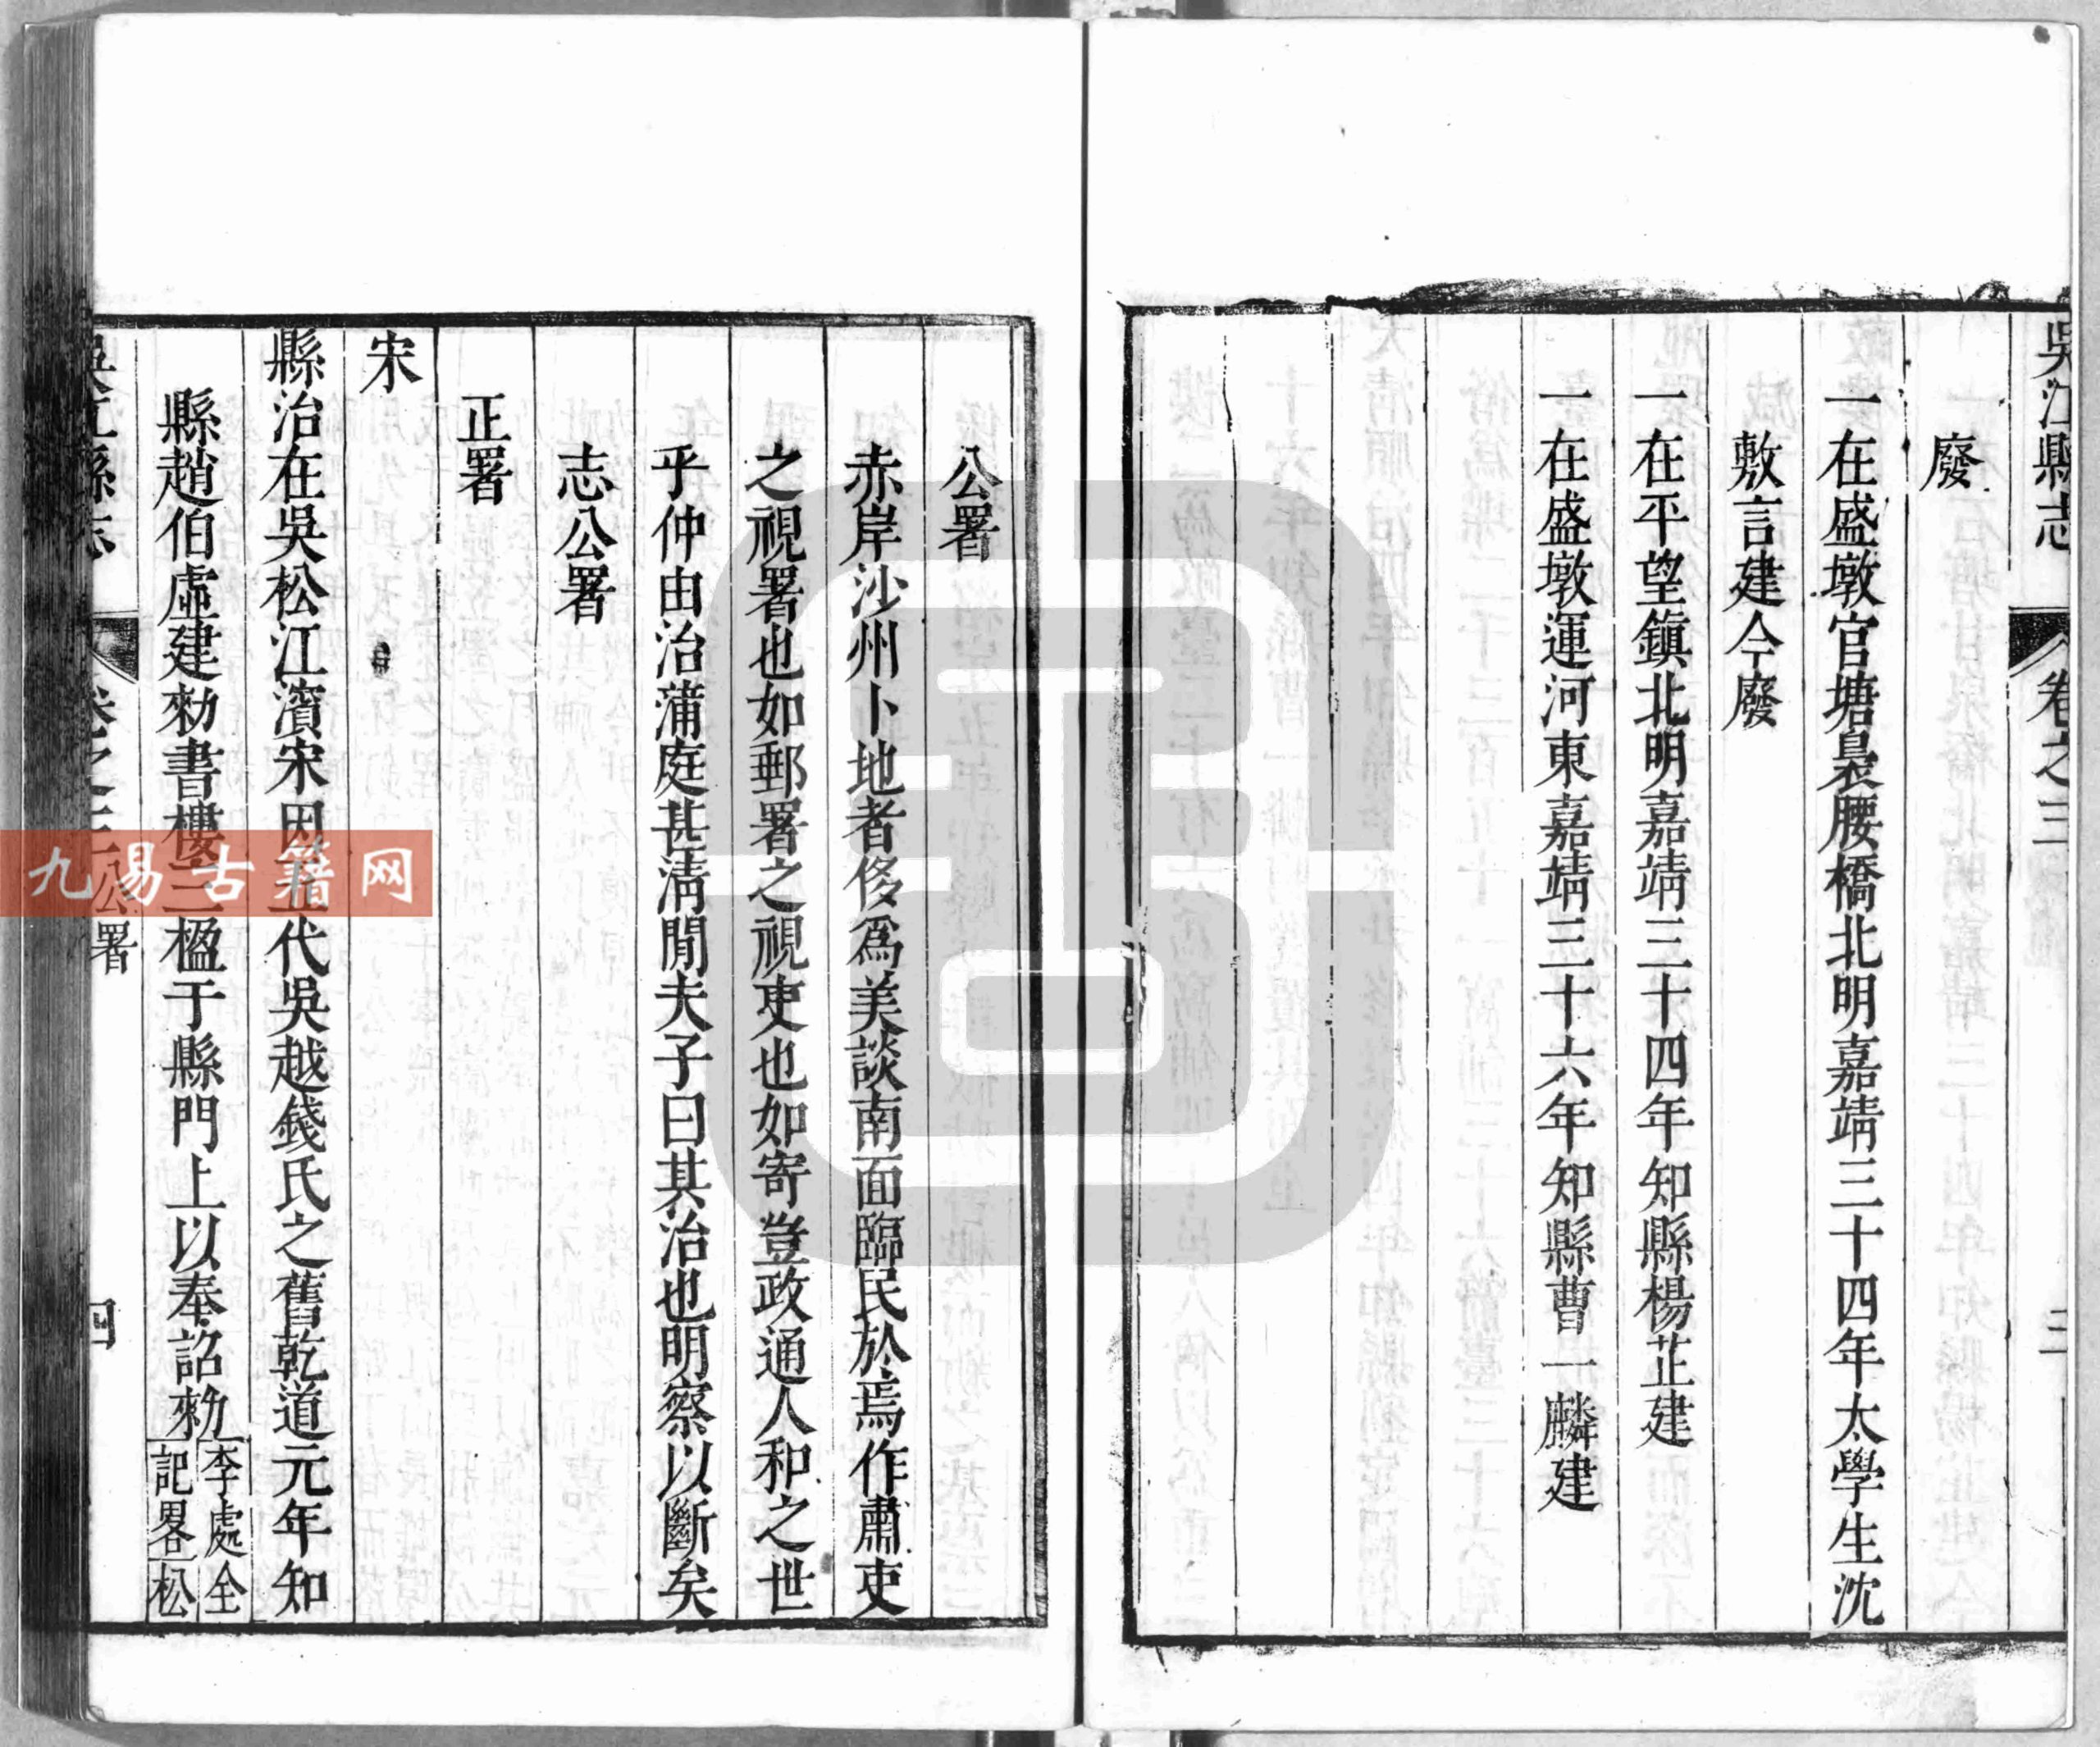 吳江縣志
卷之三
三
廢
一在盛墩官塘裊腰橋北明嘉靖三十四年太學生沈
敷言建今廢
一在平望鎮北明嘉靖三十四年知縣楊芷建
一在盛墩運河東嘉靖三十六年知縣曹一麟建
公署
赤岸沙州卜地者侈爲美談南面臨民於焉作肅吏
之視署也如郵署之視吏也如寄豈政通人和之世
乎仲由治蒲庭甚淸閒夫子曰其治也明察以斷矣
志公署
正署
宋
縣治在吳松江濱宋因五代吳越錢氏之舊乾道元年知
縣趙伯虛建勑書樓三楹于縣門上以奉詔勑
李處全
記畧松
吳江縣志
卷之三
公署
四
九易古籍网